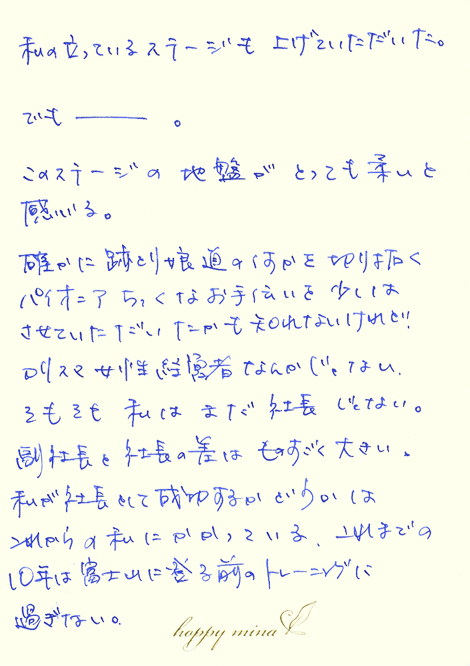 私の立っているステージも上げていただいた。
でも ―――。
このステージの地盤がとっても柔いと
感じいる。
確かに跡とり娘道のほかを切り拓く
パイオニアちっくなお手伝いを少しは
させていただいたかも知れないけれど!
カリスマ女性経営者なんかじゃない、
そもそも私はまだ社長じゃない。
副社長と社長の差はものすごく大きい。
私が社長として成功するかどうかは
これからの私にかかっている、これまでの
10年は富士山に登る前のトレーニングに
過ぎない。
happy mina